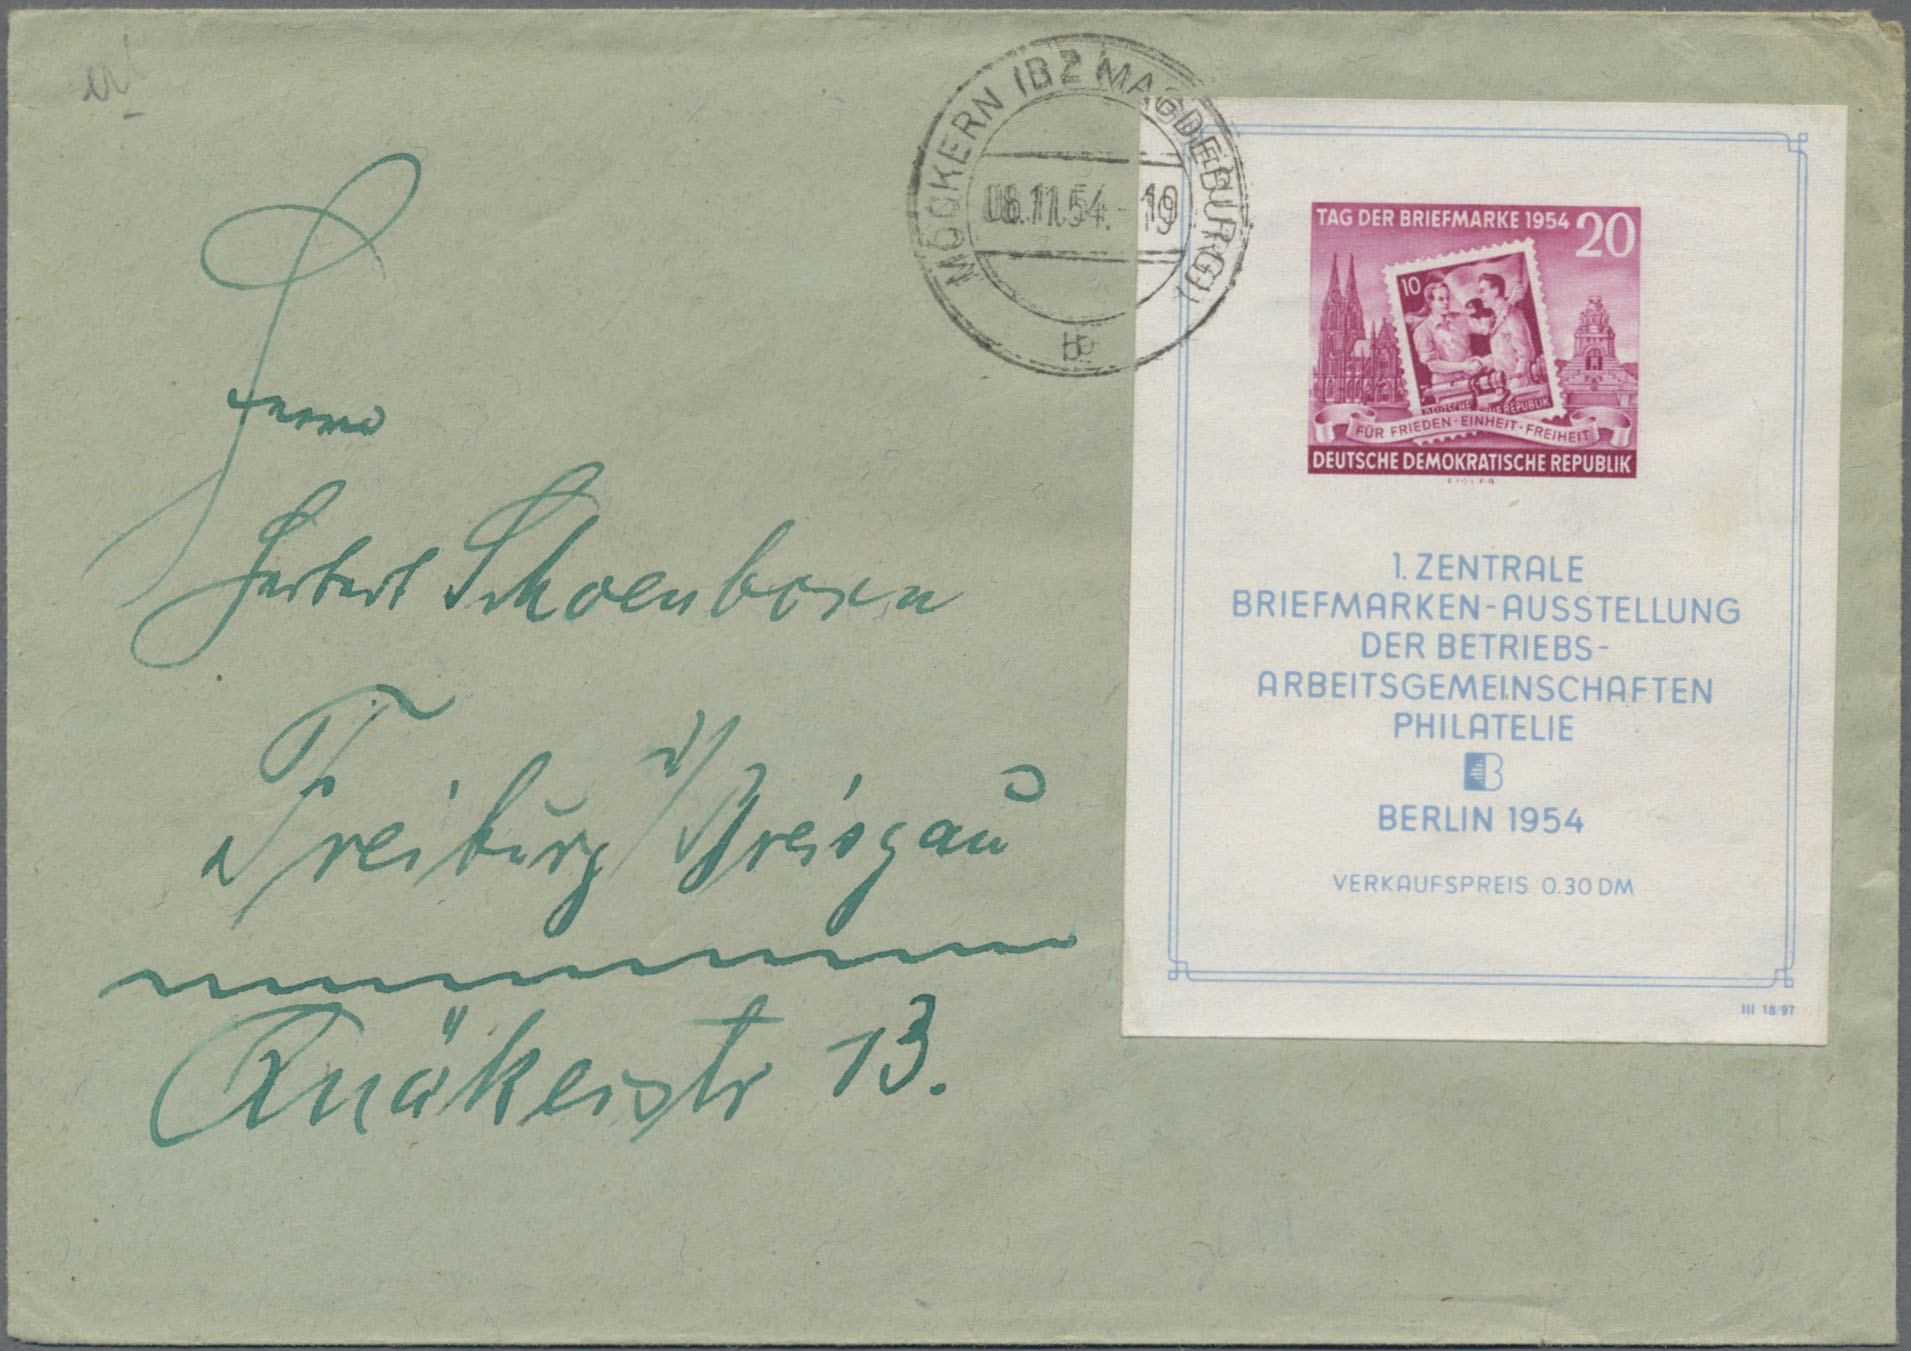 MÖCKERN (BZ MAGDEBURG)
08.11.54.-19
b
TAG DER BRIEFMARKE 1954 20
10
DEUTSCHE REPUBLIK
FÜR FRIEDEN · EINHEIT · FREIHEIT
DEUTSCHE DEMOKRATISCHE REPUBLIK
1. ZENTRALE
BRIEFMARKEN-AUSSTELLUNG
DER BETRIEBS-
ARBEITSGEMEINSCHAFTEN
PHILATELIE
B
BERLIN 1954
VERKAUFSPREIS 0.30 DM
III 18 97
Herrn
Herbert Schoenborn
Freiburg i/Breisgau
Quäkerstr 13.